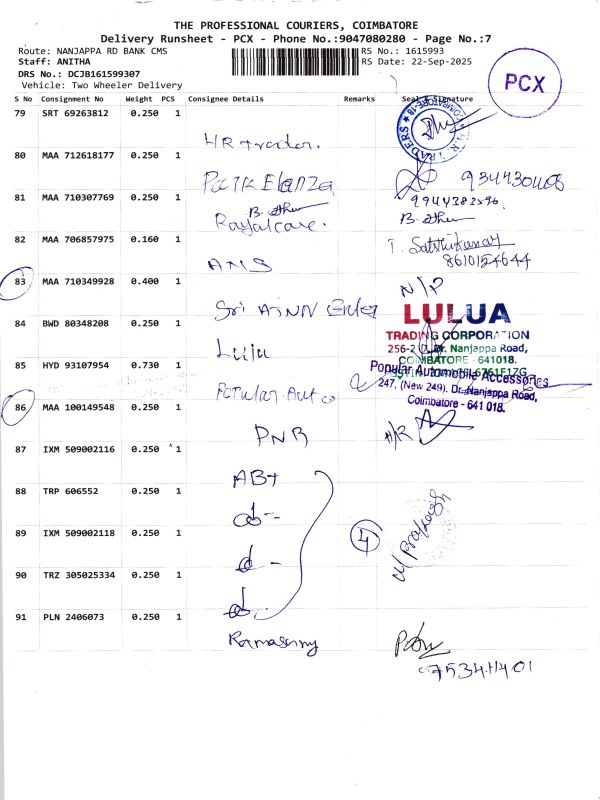 THE PROFESSIONAL COURIERS, COIMBATORE
Delivery Runsheet - PCX - Phone No.:9047080280 - Page No.:7
Route: NANJAPPA RD BANK CMS RS No.: 1615993
Staff: ANITHA RS Date: 22-Sep-2025
DRS No.: DCJB161599307
Vehicle: Two Wheeler Delivery
PCX
S No Consignment No Weight PCS Consignee Details Remarks Seal & Signature
79 SRT 69263812 0.250 1
HR trader.
H.R. TRADERS COIMBATORE-18
80 MAA 712618177 0.250 1
Park Elanza
81 MAA 710307769 0.250 1
9944282596
B.
Royalcare. B.
82 MAA 706857975 0.160 1
T. Sathishkumar
8610154644
AMS
83 MAA 710349928 0.400 1
N/P
Sri
84 BWD 80348208 0.250 1
LULUA
TRADING CORPORATION
256-2 Dr. Nanjappa Road,
COIMBATORE - 641018.
Lulu
85 HYD 93107954 0.730 1
Popular Automobile Accessories
247, (New 249), Dr. Nanjappa Road,
Coimbatore - 641 018.
Popular Auto
86 MAA 100149548 0.250 1
PNR
87 IXM 509002116 0.250 1
ABT
88 TRP 606552 0.250 1
do
89 IXM 509002118 0.250 1
4
d
90 TRZ 305025334 0.250 1
do
91 PLN 2406073 0.250 1
Ramasamy